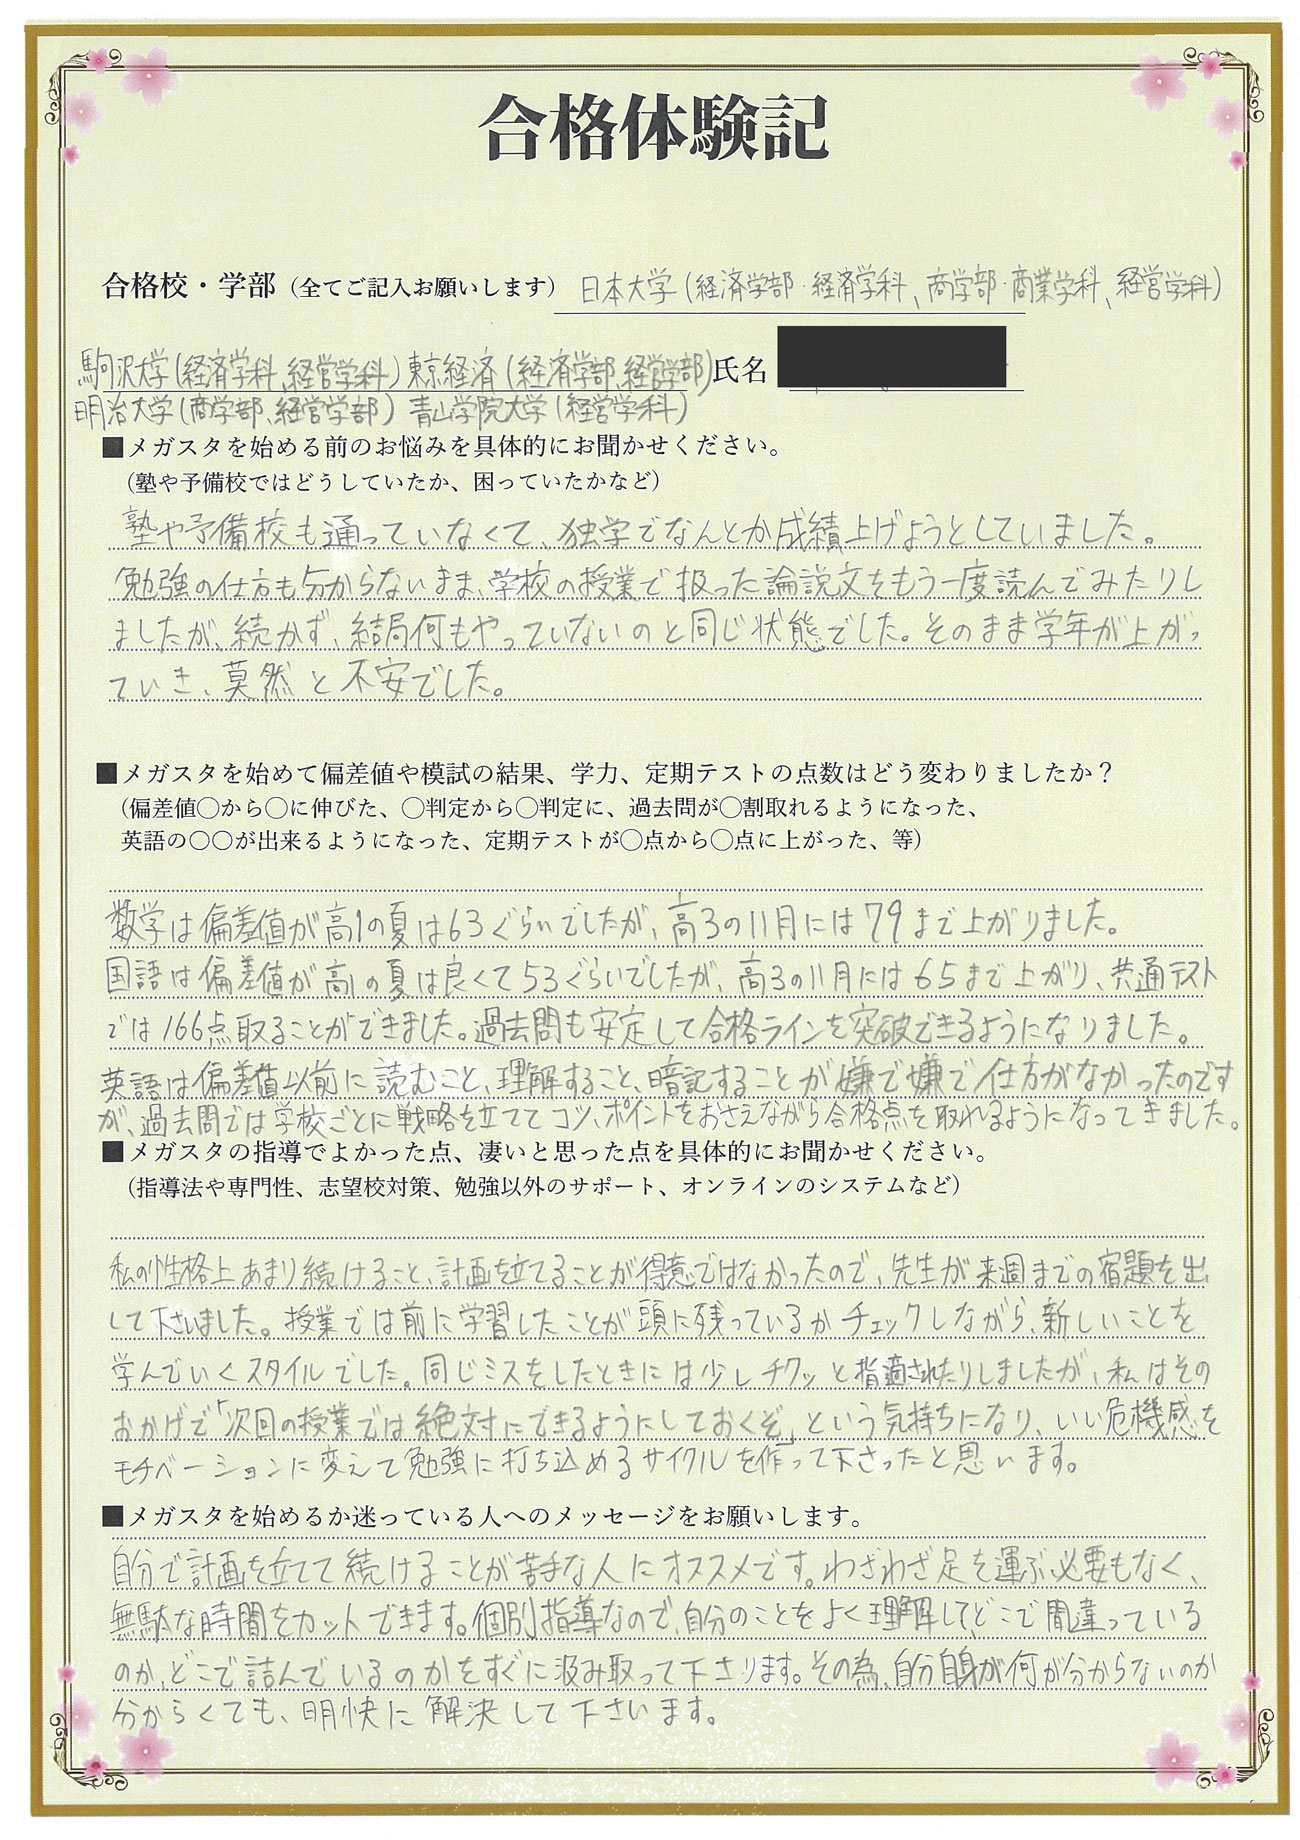 合格体験記
合格校・学部（全てご記入お願いします） 日本大学(経済学部・経済学科、商学部・商業学科、経営学科)
駒沢大学(経済学科、経営学科)東京経済(経済学部、経営学部)氏名
明治大学(商学部、経営学部) 青山学院大学(経営学科)
■メガスタを始める前のお悩みを具体的にお聞かせください。
（塾や予備校ではどうしていたか、困っていたかなど）
塾や予備校も通っていなくて、独学でなんとか成績上げようとしていました。
勉強の仕方も分からないまま、学校の授業で扱った論説文をもう一度読んでみたりし
ましたが、続かず、結局何もやっていないのと同じ状態でした。そのまま学年が上がっ
ていき、莫然と不安でした。
■メガスタを始めて偏差値や模試の結果、学力、定期テストの点数はどう変わりましたか？
（偏差値〇から〇に伸びた、〇判定から〇判定に、過去問が〇割取れるようになった、
英語の〇〇が出来るようになった、定期テストが〇点から〇点に上がった、等）
数学は偏差値が高1の夏は63ぐらいでしたが、高3の11月には79まで上がりました。
国語は偏差値が高1の夏は良くて53ぐらいでしたが、高3の11月には65まで上がり、共通テスト
では166点取ることができました。過去問も安定して合格ラインを突破できるようになりました。
英語は偏差値以前に読むこと、理解すること、暗記することが嫌で嫌で仕方がなかったのです
が、過去問では学校ごとに戦略を立ててコツ、ポイントをおさえながら合格点を取れるようになってきました。
■メガスタの指導でよかった点、凄いと思った点を具体的にお聞かせください。
（指導法や専門性、志望校対策、勉強以外のサポート、オンラインのシステムなど）
私の性格上あまり続けること、計画を立てることが得意ではなかったので、先生が来週までの宿題を出
して下さいました。授業では前に学習したことが頭に残っているかチェックしながら、新しいことを
学んでいくスタイルでした。同じミスをしたときには少しチクッと指適されたりしましたが、私はその
おかげで「次回の授業では絶対にできるようにしておくぞ」という気持ちになり、いい危機感を
モチベーションに変えて勉強に打ち込めるサイクルを作って下さったと思います。
■メガスタを始めるか迷っている人へのメッセージをお願いします。
自分で計画を立てて続けることが苦手な人にオススメです。わざわざ足を運ぶ必要もなく、
無駄な時間をカットできます。個別指導なので、自分のことをよく理解して、どこで間違っている
のか、どこで詰んでいるのかをすぐに汲み取って下さります。その為、自分自身が何が分からないのか
分からくても、明快に解決して下さいます。